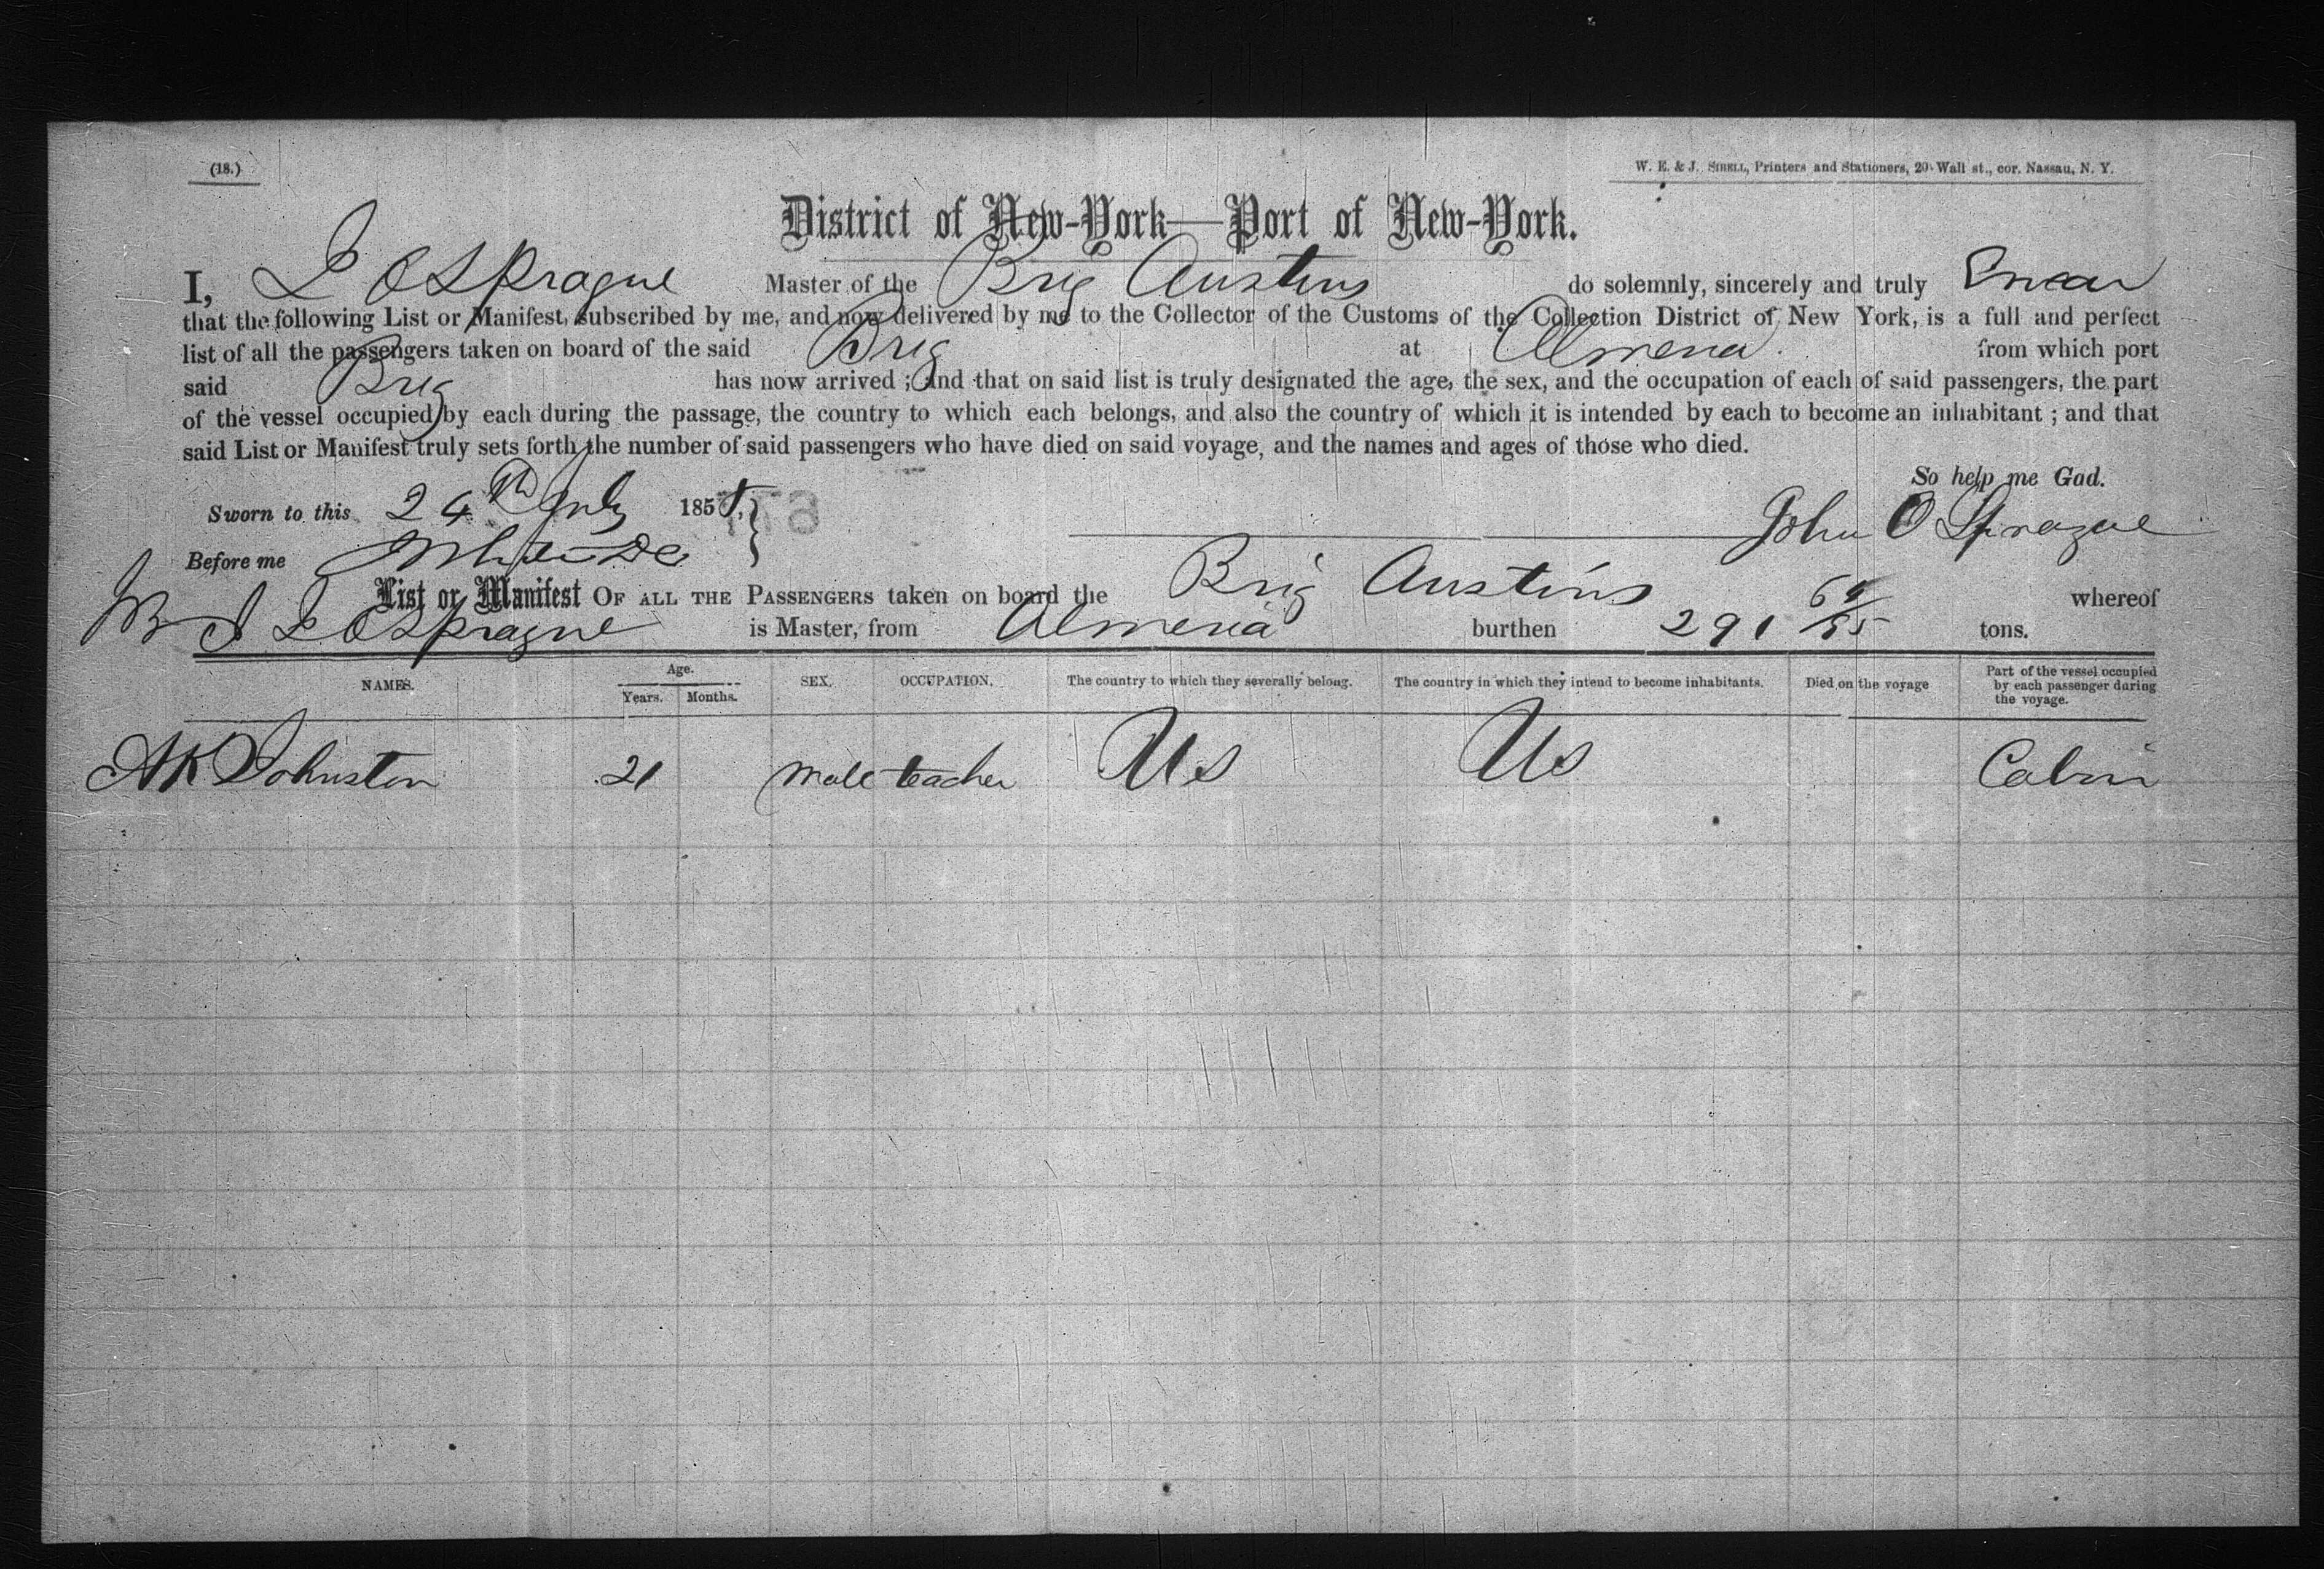 (18.)
W. E. & J. SIBELL, Printers and Stationers, 20 Wall st., cor. Nassau, N. Y.
District of New-York—Port of New-York.
I, J O Sprague Master of the Brig Austins do solemnly, sincerely and truly Swear
that the following List or Manifest, subscribed by me, and now delivered by me to the Collector of the Customs of the Collection District of New York, is a full and perfect
list of all the passengers taken on board of the said Brig at Almeria from which port
said Brig has now arrived ; and that on said list is truly designated the age, the sex, and the occupation of each of said passengers, the part
of the vessel occupied by each during the passage, the country to which each belongs, and also the country of which it is intended by each to become an inhabitant ; and that
said List or Manifest truly sets forth the number of said passengers who have died on said voyage, and the names and ages of those who died.
So help me God.
Sworn to this 24th July 185
John O Sprague
Before me
List or Manifest OF ALL THE PASSENGERS taken on board the Brig Austins whereof
J O Sprague is Master, from Almeria burthen 291 tons.
NAMES. Age. Years. Months. SEX. OCCUPATION. The country to which they severally belong. The country in which they intend to become inhabitants. Died on the voyage Part of the vessel occupied by each passenger during the voyage.
A K Johnston 21 Male teacher Us Us Cabin